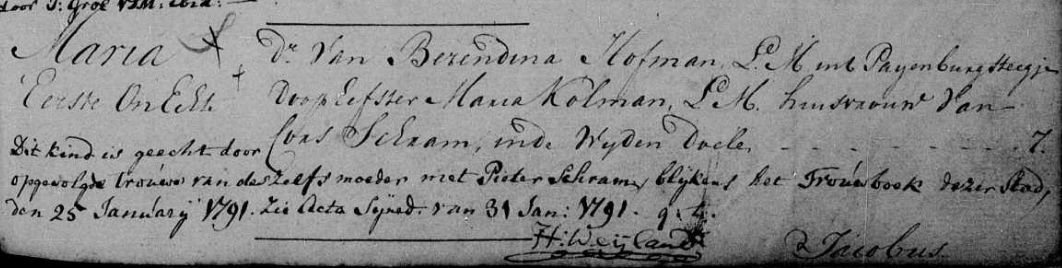 door J: Groe V:D:M: ibid:
Maria X Dr. Van Berendina Hofman, L. M. int Payenburgsteegje
Eerste OnEcht † Doophefster Maria Kolman, L. M. huisvrouw van
Cons Schram, inde Wyden Doele, 7.
Dit kind is geecht door
opgevolgde trouwe van deszelfs moeder met Pieter Schram, blijkens het Trouwboek dezer Stad,
den 25 Januarij 1791. Zie Acta Syned. van 31 Jan: 1791. q. 4.
H: Weijland
Jacobus